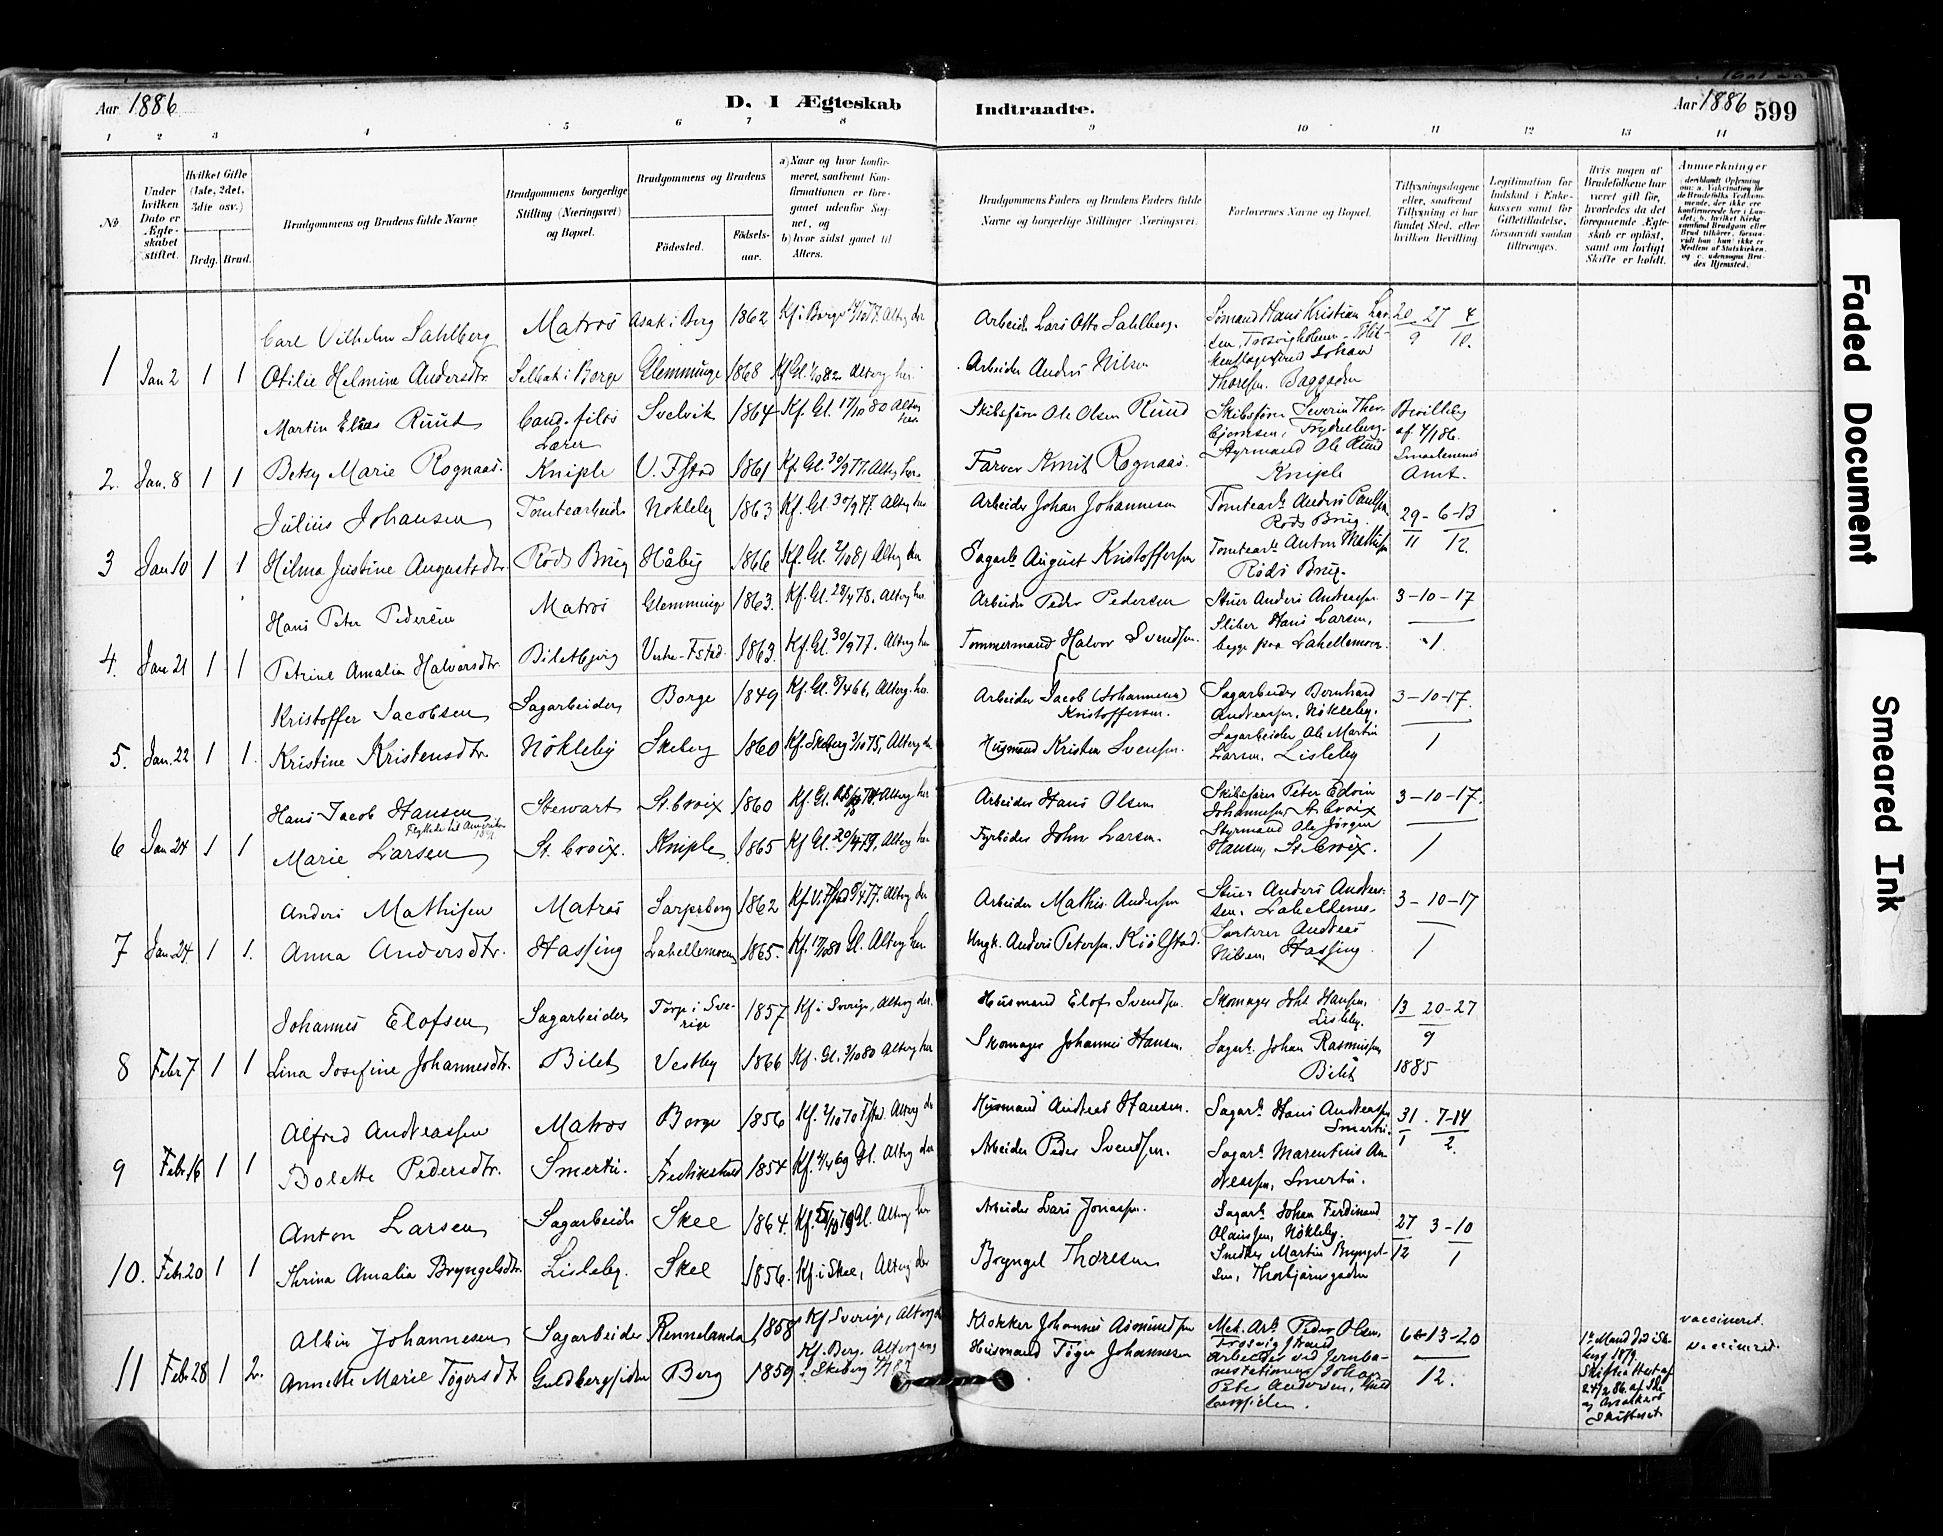 Aar 1886
D. I Ægteskab Indtraadte.
Aar 1886 599
1 2 3 4 5 6 7 8 9 10 11 12 13 14
No
Under hvilken Dato er Ægteskabet stiftet.
Hvilket Gifte (1ste, 2det, 3die osv.)
Brdg. Brud.
Brudgommens og Brudens fulde Navne
Brudgommens borgerlige Stilling (Næringsvei) og Bopæl.
Brudgommens og Brudens
Fødested.
Fødselsaar.
a) Naar og hvor konfirmeret, saafremt Konfirmationen er foregaaet udenfor Sognet, og
b) hvor sidst gaaet til Alters.
Brudgommens Faders og Brudens Faders fulde Navne og borgerlige Stillinger Næringsvei.
Forlovernes Navne og Bopæl.
Tillysningsdagene eller, saafremt Tillysning ei har fundet Sted, efter hvilken Bevilling
Legitimation for Indskud i Enkekassen samt for Giftetilladelse, forsaavidt saadan tiltrænges.
Hvis nogen af Brudefolkene har været gift før, hvorledes da det foregaaende Ægteskab er opløst, samt om lovligt Skifte er holdt.
Anmerkninger
Carl Vilhelm Sahlberg Matros Asak i Berg 1862 Kf i Borge 14/10 77. Alterg der Arbeid. Lars Otto Sahlberg. Sömand Hans Kristian Larsen, 20 27 4
9 10.
1 Jan 2 1 1 Otilie Helmine Andersdtr. Selbak i Borge Glemminge 1868 Kf Gl. 1/10 82 Alterg her. Arbeider Anders Nilsen Johan Thoresen.
Martin Elias Ruud Cand. filos Lærer Svelvik 1864 Kf. Gl. 17/10 80 Alterg her. Skibsförer Ole Olsen Ruud Skibsförer Severin Thorbjörnsen, Bevilling af 4/1 86.
2. Jan. 8 1 1 Betsy Marie Rognaas. Kniple V. Fstad 1861 Kf. Gl. 30/9 77. Alterg her. Farver Rognaas. Styrmand Ole Ruud Kniple Smaalenenes Amt.
Julius Johansen Tomtearbeider Nökleby 1863 Kf. Gl. 30/9 77. Alterg her Arbeider Johan Johannesen Tomtearb. Anders Paulsen Röds Brug. 29 - 6 - 13
11 12.
3 Jan 10 1 1 Hilma Justine Augustsdtr. Röds Brug Håby 1866 Kf. Gl. 2/10 81 Alterg her Sagarb. August Kristoffersen Tomtearb. Anton Mathisen Röds Brug.
Hans Peter Pedersen Matros Glemminge 1863. Kf. Gl. 28/4 78. Alterg her. Arbeider Peder Pedersen Stuer Anders Andreasen. 3 - 10 - 17
4. Jan 21 1 1 Petrine Amalia Halvorsdtr. Biletbjerg Vestre-Fstad. 1863. Kf. Gl. 30/9 77. Alterg her Tømmermand Halvor Svendsen. Sliber Hans Larsen, begge fra Lahellemoen. 1.
Kristoffer Jacobsen Sagarbeider Borge 1849 Kf. Gl. 8/4 66, Alterg. her. Arbeider Jacob (Johannesen) Kristoffersen. Sagarbeider Bernhard Andreasen, Nökleby. 3 - 10 - 17.
5. Jan. 22 1 1. Kristine Kristensdtr. Nökleby Skeberg 1860 Kf. Skeberg 3/10 75, Alterg der Husmand Kristen Svensen. Sagarbeider Ole Martin Larsen, Lisleby 1
Hans Jacob Hansen Stewart St. Croix 1860 Kf. Gl. Alterg her Arbeider Hans Olsen Skibsförer Peter Edvin Johannesen, St Croix 3 - 10 - 17.
Flyttede til Amerika
6 Jan 24 1 1 Marie Larsen St. Croix. Kniple 1865 Kf Gl. 20/4 79, Alterg her Fyrböder John Larsen. Styrmand Ole Jörgen Hansen, St. Croix. 1
Anders Mathisen Matros Sarpsborg 1862 Kf. V. Fstad 8/4 77. Alterg der Arbeider Mathis Andersen Stuer Anders Andreassen, 3 - 10 - 17
7 Jan 24 1 1. Anna Andersdtr. Hassing Lahellemoen 1865. Kf. 17/10 80 Gl. Alterg her Ungk. Anders Petersen. Kjölstad. Sorterer Andreas Nilsen, Hassing. 1
Johannes Elofsen Sagarbeider Torp i Sverige 1857 Kf. i Sverige, Alterg der. Husmand Elof Svendsen. Skomager Joh. Hansen, Lisleby. 13 20 - 27
9
8 Febr 7 1 1 Lina Josefine Johannesdtr. Bilet Vestby 1866 Kf. Gl. 3/10 80 Alterg her Skomager Johannes Hansen. Sagarb. Johan Rasmussen Bilet 1885
Alfred Andreassen Matros Borge 1856 Kf. 2/10 70 Fstad. Alterg der Husmand Andreas Hansen. Sagarb. Hans Andreassen Smertu. 31 . 7 - 14
1 2.
9 Febr. 16 1 1 Bolette Pedersdtr. Smertu. Fredriksstad 1854 Kf. 4/4 69 Gl. Alterg der Arbeider Peder Svendsen. Sagarb. Marentius Andreasen, Smertu.
Anton Larsen Sagarbeider Skee 1864. Kf. Gl. Alterg her Arbeider Lars Jonassen. Sagarb. Johan Ferdinand Olaussen, Nökleby. 27 3 - 10
12 1
10. Febr. 20 1 1 Thrina Amalia Bryngelsdtr. Lisleby. Skee 1856. Kf. i Skee, Alterg der Bryngel Thoresen Snedker Martin Bryngelsen, Thorbjörnsgaden
Albin Johannesen Sagarbeider Rennelanda 1858 Kf Sverige, Alterg der Klokker Johannes Asmundsen Mek. Arb. Peder Olsen, 6 - 13 - 20 vaccineret.
11 Febr. 28 1 2. Annette Marie Tögersdtr Guldbergsiden Berg 1859 Kf. Berg. Alterg. Skeberg Husmand Töger Johannesen Arbeider ved Jernbanestationen Johan Peter Andersen, Guldbergsiden. 12. 1e Mand död i Skeberg 1879. vaccineret.
Faded Document
Smeared Ink